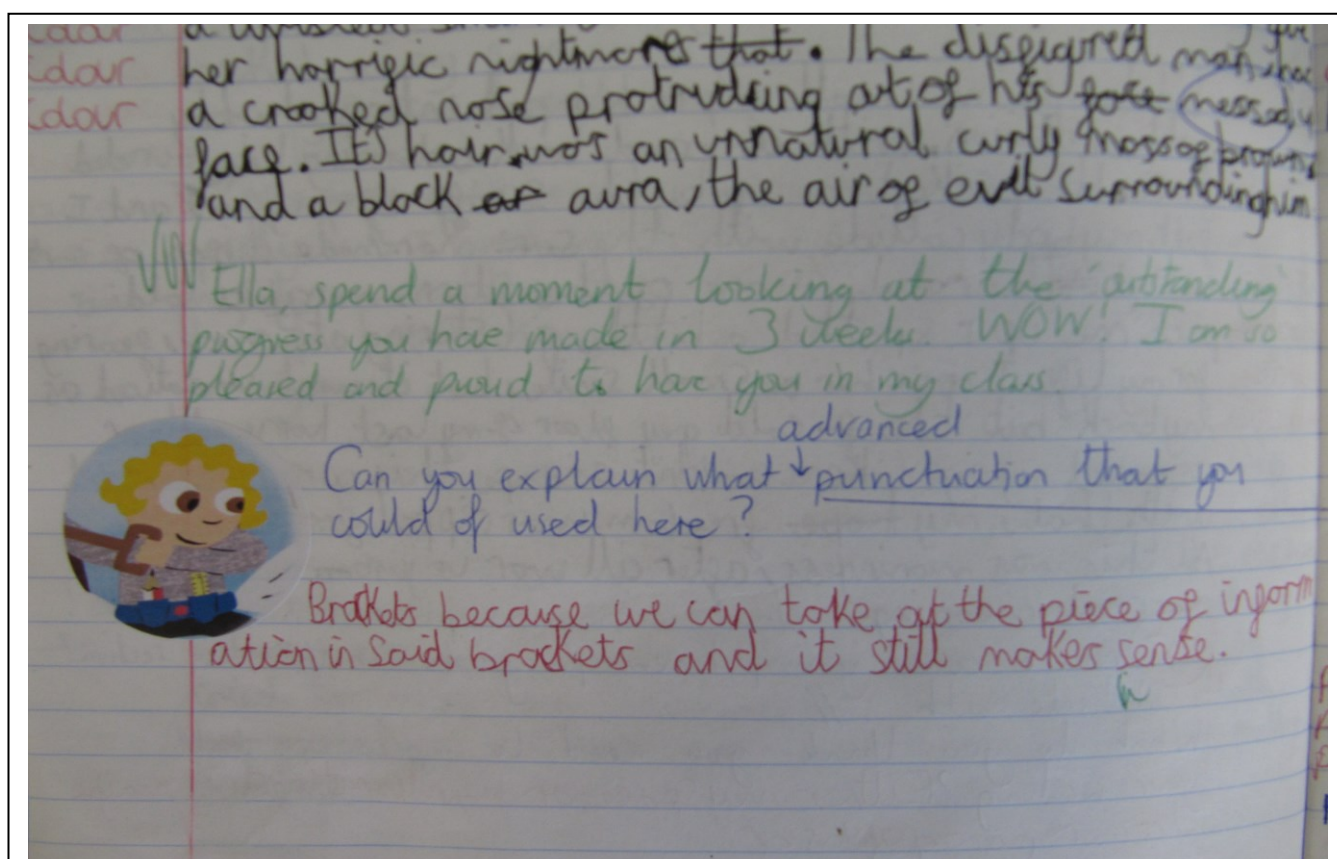 her horrific nightmores that. The disfigured man
a crooked nose protruding out of his face messed
face. It's hair was an unnatural curly mass of brown
and a black aura, the air of evil surrounding him
VVV
Ella, spend a moment looking at the 'outstanding'
progress you have made in 3 weeks. WOW! I am so
pleased and proud to have you in my class.
advanced
Can you explain what ↓ punctuation that you
could of used here?
Brackets because we can take out the piece of inform
ation in said brackets and it still makes sense.